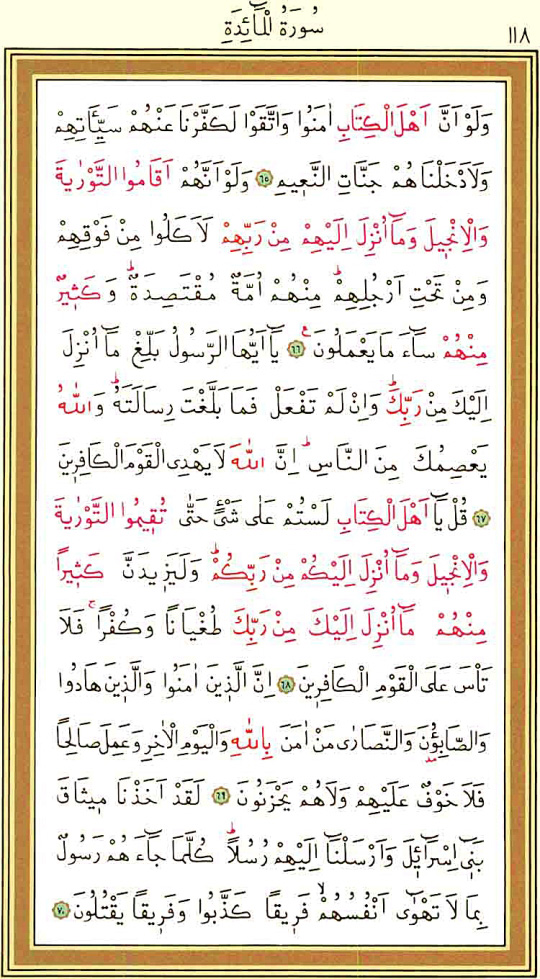 سُورَةُ الْمَٓائِدَةِ
١١٨
وَلَوْ اَنَّ اَهْلَ الْكِتَابِ اٰمَنُوا وَاتَّقَوْا لَكَفَّرْنَا عَنْهُمْ سَيِّـَٔاتِهِمْ
وَلَاَدْخَلْنَاهُمْ جَنَّاتِ النَّعٖيمِ ﴿٦٥﴾ وَلَوْ اَنَّهُمْ اَقَامُوا التَّوْرٰيةَ
وَالْاِنْجٖيلَ وَمَٓا اُنْزِلَ اِلَيْهِمْ مِنْ رَبِّهِمْ لَاَكَلُوا مِنْ فَوْقِهِمْ
وَمِنْ تَحْتِ اَرْجُلِهِمْۜ مِنْهُمْ اُمَّةٌ مُقْتَصِدَةٌۜ وَكَثٖيرٌ
مِنْهُمْ سَٓاءَ مَا يَعْمَلُونَࣖ ﴿٦٦﴾ يَٓا اَيُّهَا الرَّسُولُ بَلِّغْ مَٓا اُنْزِلَ
اِلَيْكَ مِنْ رَبِّكَۜ وَاِنْ لَمْ تَفْعَلْ فَمَا بَلَّغْتَ رِسَالَتَهُۜ وَاللّٰهُ
يَعْصِمُكَ مِنَ النَّاسِۜ اِنَّ اللّٰهَ لَا يَهْدِي الْقَوْمَ الْكَافِرٖينَ
﴿٦٧﴾ قُلْ يَٓا اَهْلَ الْكِتَابِ لَسْتُمْ عَلٰى شَيْءٍ حَتّٰى تُقٖيمُوا التَّوْرٰيةَ
وَالْاِنْجٖيلَ وَمَٓا اُنْزِلَ اِلَيْكُمْ مِنْ رَبِّكُمْۜ وَلَيَزٖيدَنَّ كَثٖيراً
مِنْهُمْ مَٓا اُنْزِلَ اِلَيْكَ مِنْ رَبِّكَ طُغْيَاناً وَكُفْراًۚ فَلَا
تَأْسَ عَلَى الْقَوْمِ الْكَافِرٖينَ ﴿٦٨﴾ اِنَّ الَّذٖينَ اٰمَنُوا وَالَّذٖينَ هَادُوا
وَالصَّابِؤُ۫نَ وَالنَّصَارٰى مَنْ اٰمَنَ بِاللّٰهِ وَالْيَوْمِ الْاٰخِرِ وَعَمِلَ صَالِحاً
فَلَا خَوْفٌ عَلَيْهِمْ وَلَا هُمْ يَحْزَنُونَ ﴿٦٩﴾ لَقَدْ اَخَذْنَا مٖيثَاقَ
بَنٖٓي اِسْرَٓائٖلَ وَاَرْسَلْنَٓا اِلَيْهِمْ رُسُلاًۜ كُلَّمَا جَٓاءَهُمْ رَسُولٌ
بِمَا لَا تَهْوٰٓى اَنْفُسُهُمْۙ فَرٖيقاً كَذَّبُوا وَفَرٖيقاً يَقْتُلُونَ ﴿٧٠﴾